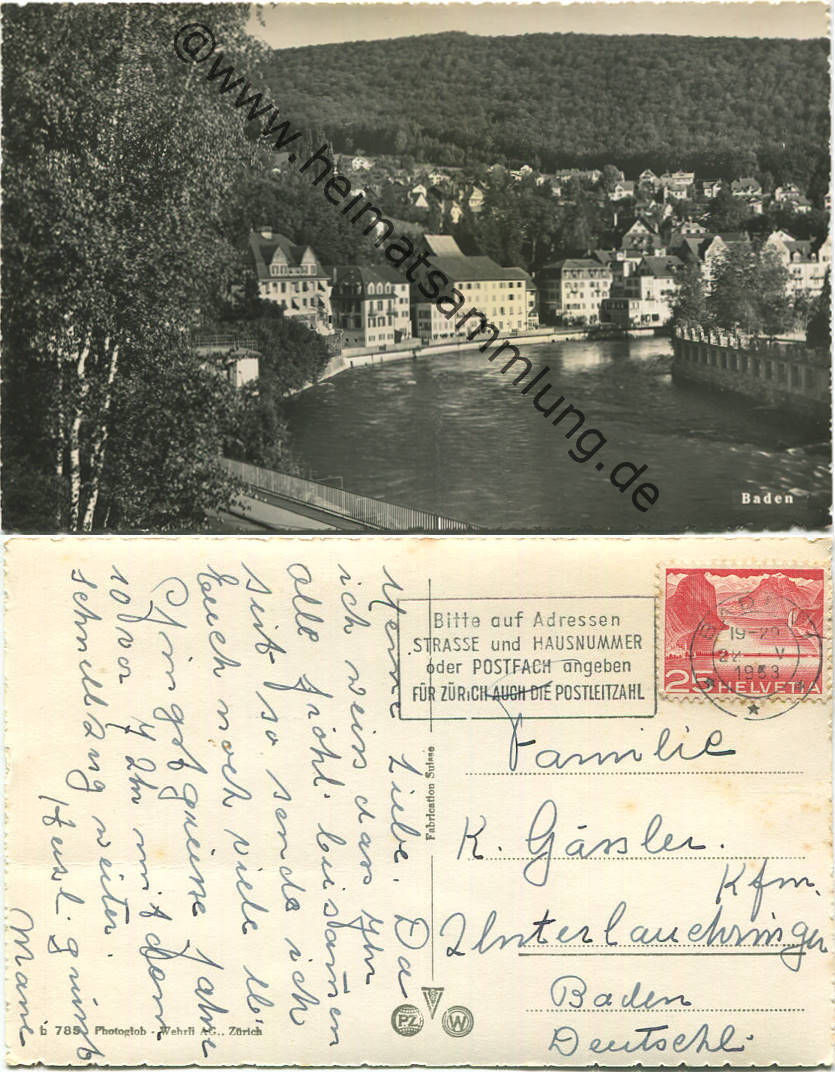 @www.heimatsammlung.de
Baden
Bitte auf Adressen
STRASSE und HAUSNUMMER
oder POSTFACH angeben
FÜR ZÜRICH AUCH DIE POSTLEITZAHL
BADEN
19-20
22. V
1953
25 HELVETIA
Meine Liebe. Da
ich weiss das Ihr
alle fröhl. beisamen
sint so sende ich
Euch noch viele lb.
Pfingstgrüsse fahre
10 vor 7 Uhr mit dem
schnellzug weiter.
Herzl. grüsst
Fabrication Suisse
Familie
K. Gässler.
Kfm.
Unterlauchringen
Baden
Deutschl.
PZ
W
785 Photoglob - Wehrli AG., Zürich